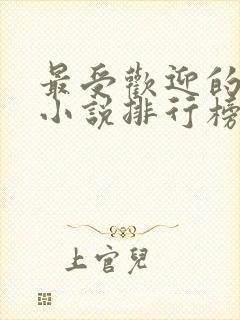 最受歡迎的
小說排行榜
上官兒